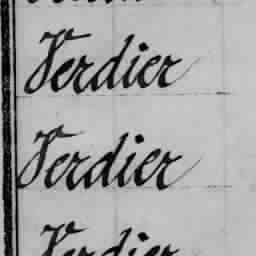 Verdier
Verdier
Verdier